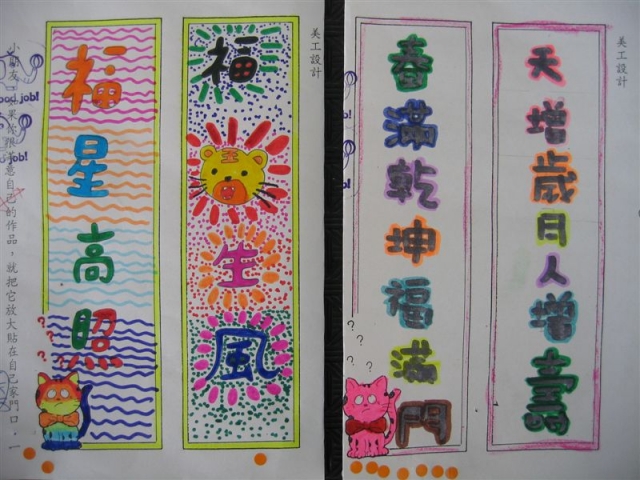 美工設計
天增歲月人增壽
春滿乾坤福滿門
美工設計
福生風
福星高照
小朋友果你很滿意自己的作品，就把它放大貼在自己家門口。
ood job!
job!